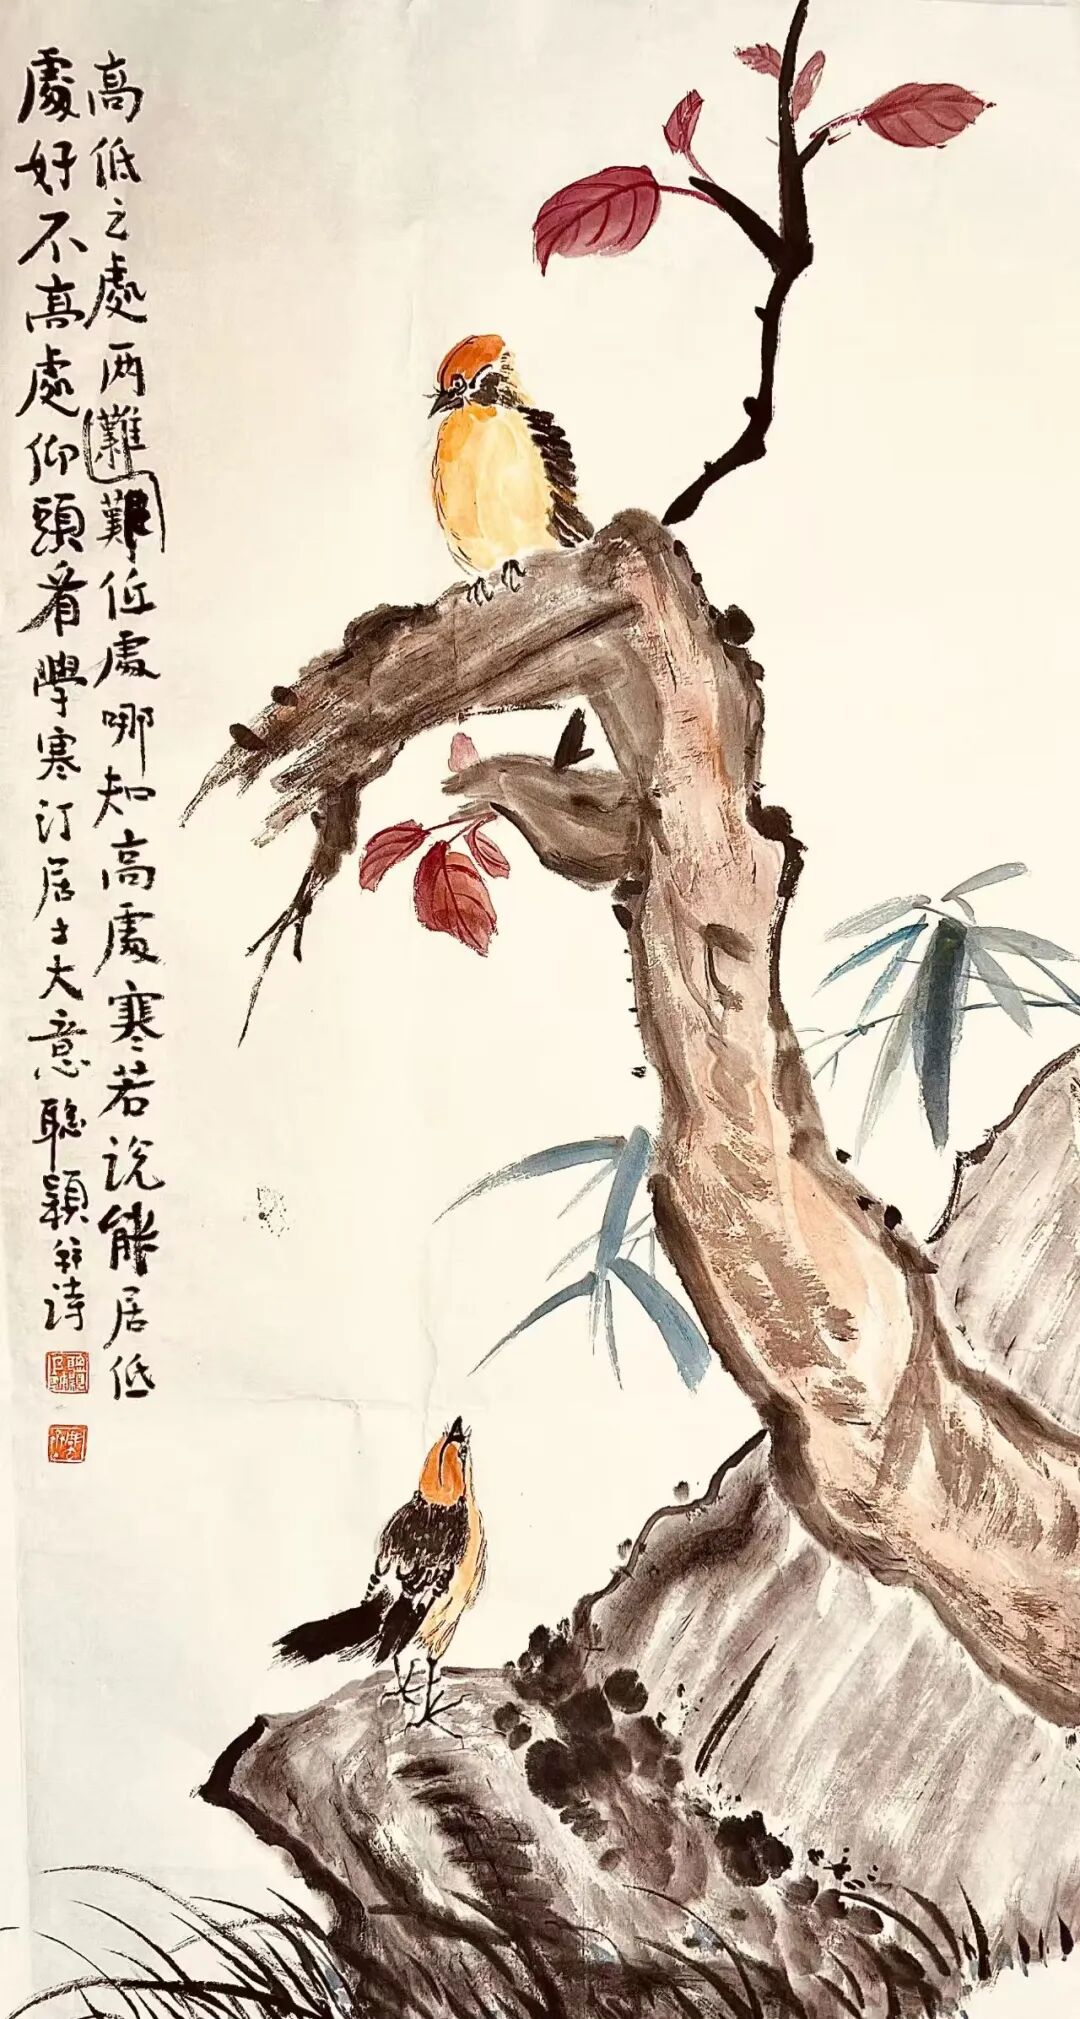 高低之處两難難低處哪知高處寒若说能居低
處好不高處仰頭看學寒汀居士大意聪穎并诗